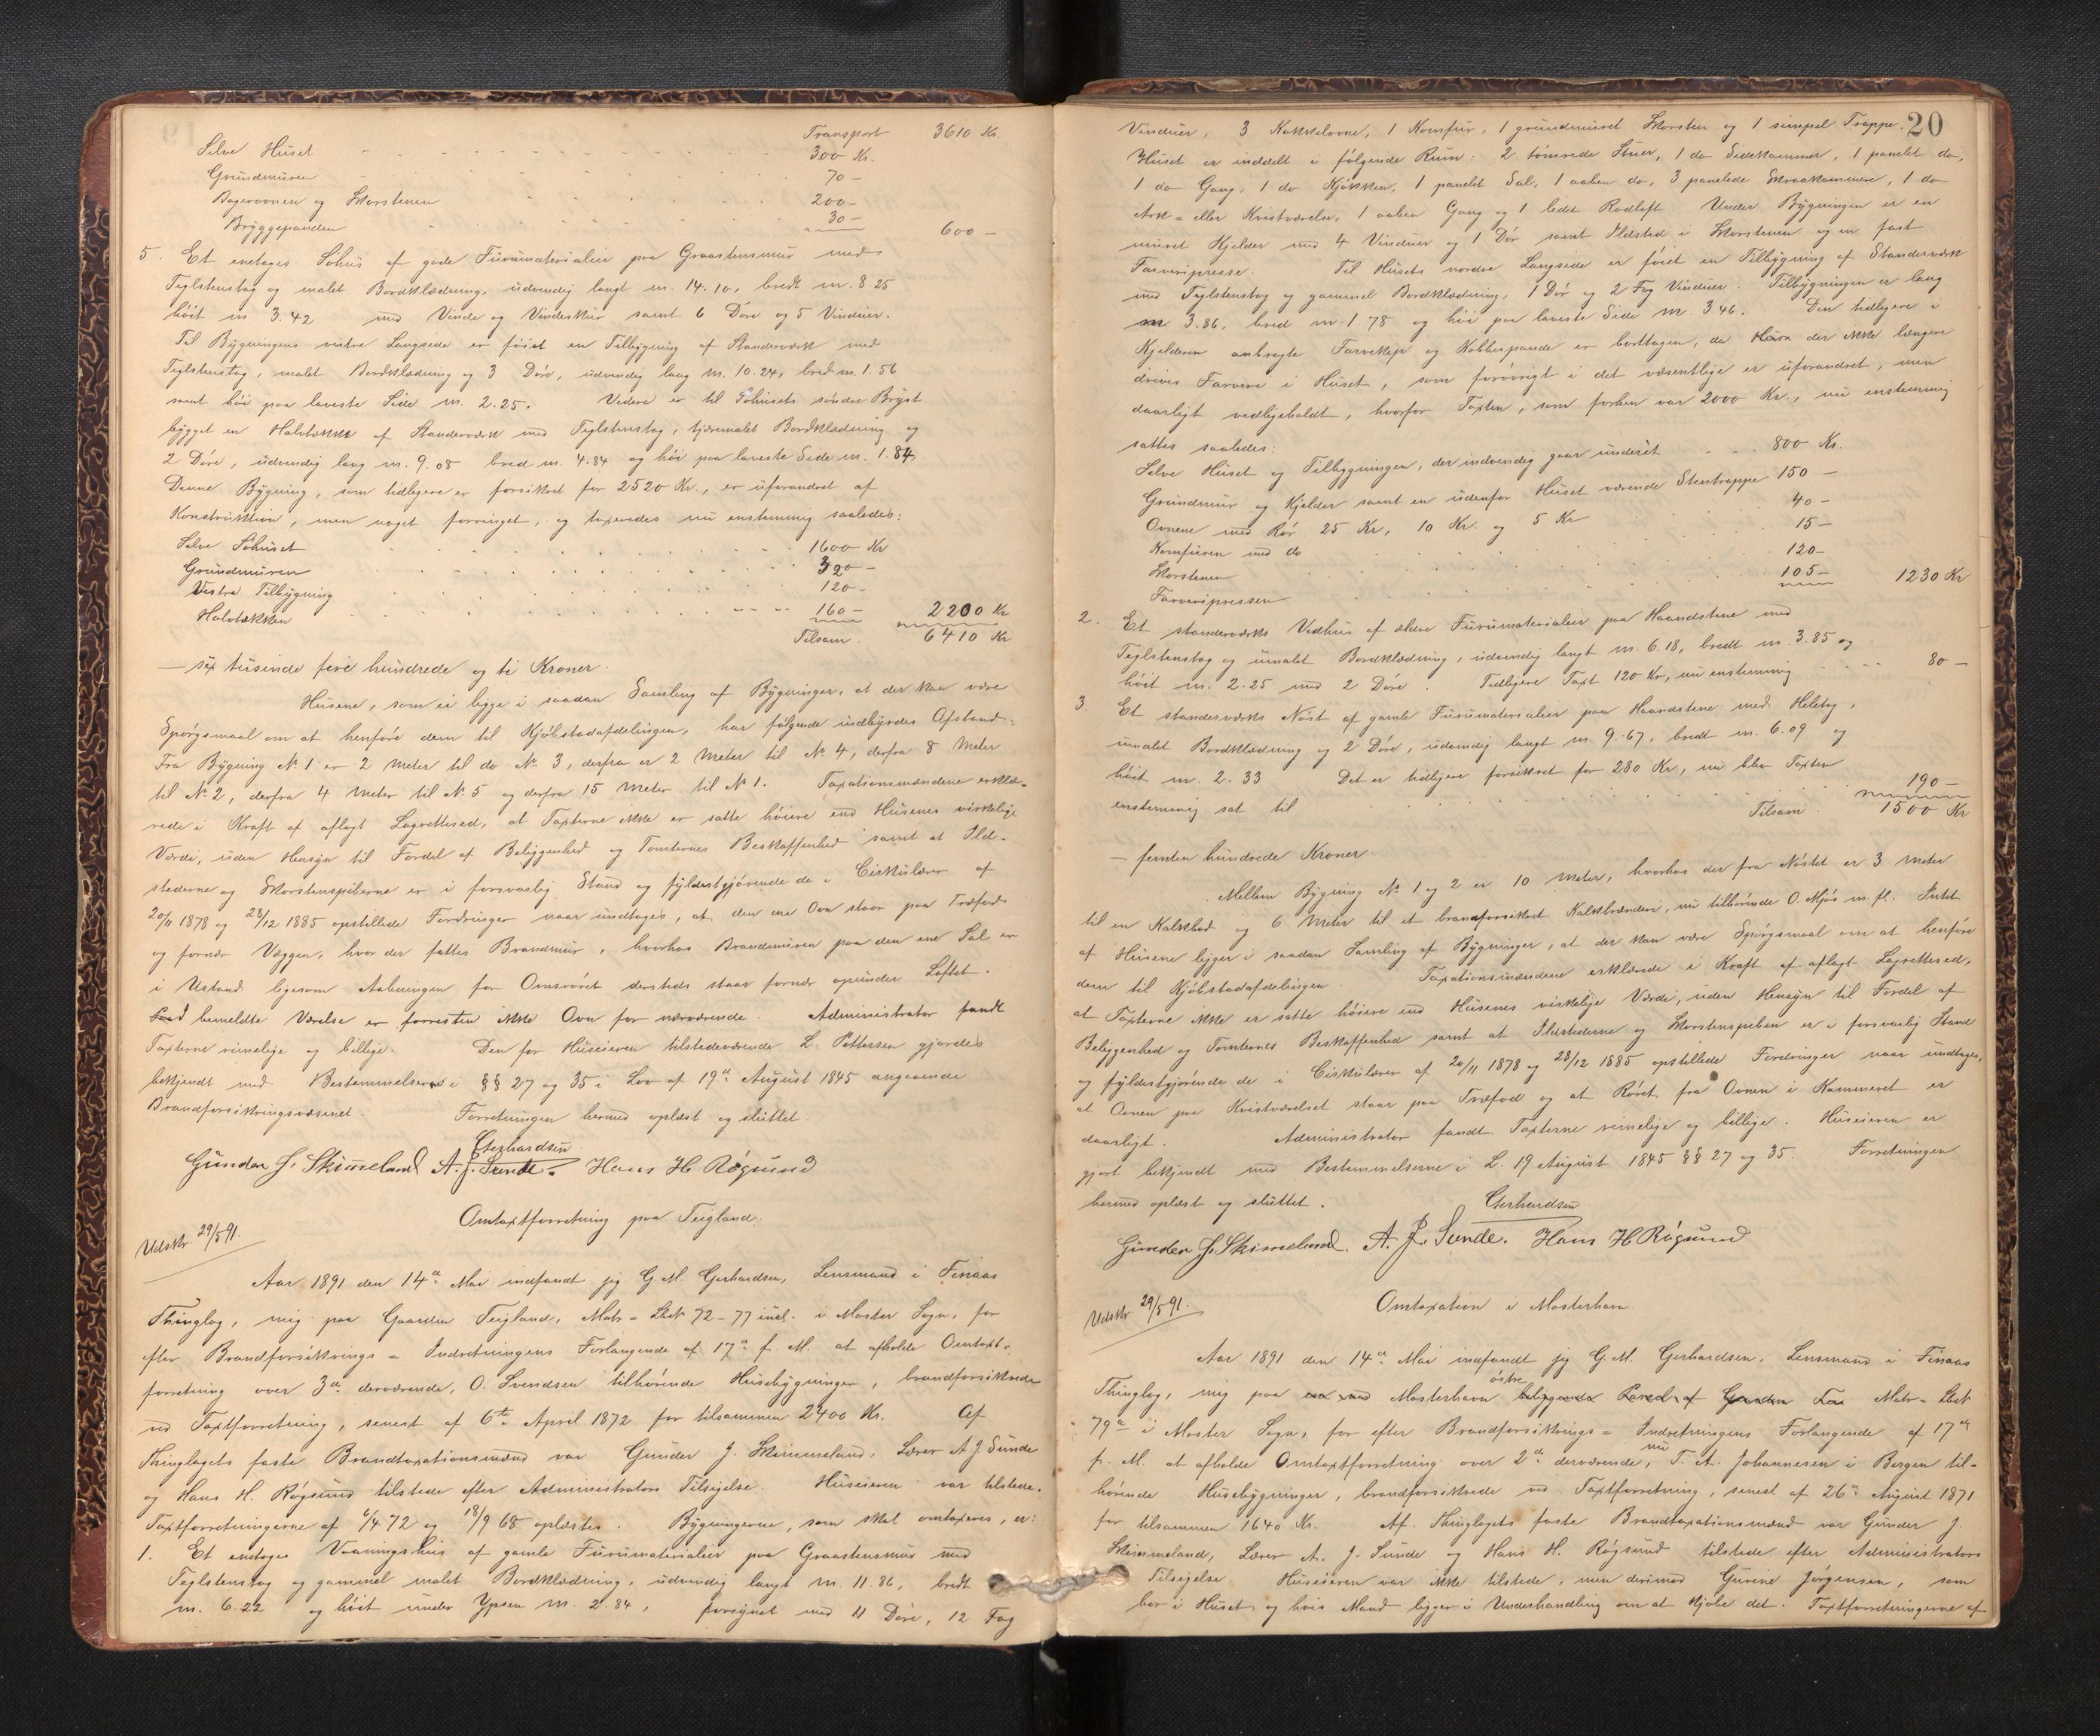 Transport 3610 Kr.
Selve Huset 300 Kr.
Grundmuren 70 —
Bagerovnen og Skorstenen 200 —
Bryggepanden 30 — 600 —
5. Et enetages Söhus af gode Furumaterialier paa Graastensmur med
Teglstenstag og malet Bordklædning, udvendig langt m. 14.10, bredt m. 8.25
höit m 3.42 med Vinde og Vindeskur samt 6 Döre og 5 Vinduer.
Til Bygningens vestre Langside er föiet en Tilbygning af Standerværk med
Teglstenstag, malet Bordklædning og 3 Döre, udvendig lang m. 10.24, bred m. 1.56
samt höi paa laveste Side m. 2.25. Videre er til Söhusets söndre Bryst
bygget en Halvtække af Standerværk med Teglstenstag, tjæremalet Bordklædning og
2 Döre, udvendig lang m. 9.08 bred m. 4.84 og höi paa laveste Side m. 1.84.
Denne Bygning, som tidligere er forsikret for 2520 Kr., er uforandret af
Konstruktion, men noget forringet, og taxeredes nu enstemmig saaledes:
Selve Söhuset 1600 Kr
Grundmuren 320 —
Vestre Tilbygning 120 —
Halvtækken 160 — 2200 Kr
Tilsam. 6410 Kr
— sex tusinde fire hundrede og ti Kroner.
Husene, som ei ligge i saadan Samling af Bygninger, at der kan være
Spörgsmaal om at henföre dem til Kjöbstadafdelingen, har fölgende indbyrdes Afstand:
Fra Bygning No 1 er 2 Meter til do No 3, derfra er 2 Meter til No 4, derfra 8 Meter
til No 2, derfra 4 Meter til No 5 og derfra 15 Meter til No 1. Taxationsmændene erklæ-
rede i Kraft af aflagt Lagrettesed, at Taxterne ikke er satte höiere end Husenes virkelige
Værdi, uden Hensyn til Fordel af Beliggenhed og Tomternes Beskaffenhed samt at Ild-
stederne og Skorstenspiberne er i forsvarlig Stand og fyldestgjörende de i Cirkulærer af
20/11 1878 og 28/12 1885 opstillede Fordringer naar undtages, at den ene Ovn staar paa Træfod
og fornær Væggen, hvor der fattes Brandmur, hvorhos Brandmuren paa den ene Sal er
i Ustand ligesom Aabningen for Ovnsröret dersteds staar fornær opunder Loftet.
Paa bemeldte Værelse er forresten ikke Ovn for nærværende. Administrator fandt
Taxterne rimelige og billige. Den for Huseieren tilstedeværende L. Pettersen gjordes
bekjendt med Bestemmelserne i §§ 27 og 35 i Lov af 19de August 1845 angaaende
Brandforsikringsvæsenet. Forretningen hermed oplæst og sluttet.
Gerhardsen
Gunder J. Skimmeland A. J. Sunde. Hans H Rögsund
Omtaxtforretning paa Teigland.
Udskr. 29/5 91.
Aar 1891 den 14de Mai indfandt jeg G M. Gerhardsen, Lensmand i Finaas
Thinglag, mig paa Gaarden Teigland, Matr-Löbn 72–77 incl. i Moster Sogn, for
efter Brandforsikrings-Indretningens Forlangende af 17de f. M. at afholde Omtaxt-
forretning over 3de derværende, O. Svendsen tilhörende Husebygninger, brandforsikrede
ved Taxtforretning, senest af 6te April 1872 for tilsammen 2400 Kr. Af
Thinglagets faste Brandtaxationsmænd var Gunder J. Skimmeland, Lærer A J Sunde
og Hans H. Rögsund tilstede efter Administrators Tilsigelse. Huseieren var tilstede.
Taxtforretningerne af 6/4 72 og 18/9 68 oplæstes. Bygningerne, som skal omtaxeres, er:
1. Et enetages Vaaningshus af gamle Furumaterialier paa Graastensmur med
Teglstenstag og gammel malet Bordklædning, udvendig langt m. 11.86, bredt
m. 6.22 og höit under Ypsen m. 2.84, forsynet med 11 Döre, 12 Fag
20
Vinduer, 3 Kakkelovne, 1 Komfur, 1 grundmuret Skorsten og 1 simpel Trappe.
Huset er inddelt i fölgende Rum: 2 tömrede Stuer, 1 do Sidekammer, 1 panelet do,
1 do Gang, 1 do Kjökken, 1 panelet Sal, 1 aaben do, 3 panelede Skraakammere, 1 do
Ark- eller Kvistværelse, 1 aaben Gang og 1 ledet Rodloft. Under Bygningen er en
muret Kjelder med 4 Vinduer og 1 Dör samt Ildsted i Skorstenen og en fast
Farveripresse. Til Husets nordre Langside er föiet en Tilbygning af Standerværk
med Teglstenstag og gammel Bordklædning, 1 Dör og 2 Fag Vinduer. Tilbygningen er lang
m 3.86, bred m. 1.78 og höi paa laveste Side m. 3.46. Den tidligere i
Kjelderen anbragte Farvekyp og Kobberpande er borttagen, da der ikke længere
drives Farveri i Huset, som forövrigt i det væsentlige er uforandret, men
daarligt vedligeholdt, hvorfor Taxten, som forhen var 2000 Kr., nu enstemmig
sattes saaledes:
Selve Huset og Tilbygningen, der indvendig gaar underet 800 Kr.
Grundmur og Kjelder samt en udenfor Huset værende Stentrappe 150 —
Ovnene med Rör 25 Kr, 10 Kr. og 5 Kr 40 —
Komfuren med do 15 —
Skorstenen 120 —
Farveripressen 105 — 1230 Kr
2. Et standerværks Vedhus af ældre Furumaterialier paa Haandstene med
Teglstenstag og umalet Bordklædning, udvendig langt m. 6.18, bredt m. 3.85 og
höit m. 2.25 med 2 Döre. Tidligere Taxt 120 Kr, nu enstemmig 80 —
3. Et standerværks Nöst af gamle Furumaterialier paa Haandstene med Heletag,
umalet Bordklædning og 2 Döre, udvendig langt m. 9.67, bredt m. 6.09 og
höit m. 2.33 Det er tidligere forsikret for 280 Kr., nu blev Taxten
enstemmig sat til 190 —
Tilsam. 1500 Kr
— femten hundrede Kroner
Mellem Bygning No 1 og 2 er 10 Meter, hvorhos der fra Nöstet er 3 Meter
til en Kalkbod og 6 Meter til et brandforsikret Kalkbrænderi, nu tilhörende O. Mjös m. fl. Intet
af Husene ligger i saadan Samling af Bygninger, at der kan være Spörgsmaal om at henföre
dem til Kjöbstadafdelingen. Taxationsmændene erklærede i Kraft af aflagt Lagrettesed,
at Taxterne ikke er satte höiere end Husenes virkelige Værdi, uden Hensyn til Fordel af
Beliggenhed og Tomternes Beskaffenhed samt at Ildstederne og Skorstenspiben er i forsvarlig Stand
og fyldestgjörende de i Cirkulærer af 20/11 1878 og 28/12 1885 opstillede Fordringer naar undtages,
at Ovnen paa Kvistværelset staar paa Træfod og at Röret fra Ovnen i Kammeret er
daarligt. Administrator fandt Taxterne rimelige og billige. Huseieren er
gjort bekjendt med Bestemmelserne i L. 19 August 1845 §§ 27 og 35. Forretningen
hermed oplæst og sluttet.
Gerhardsen
Gunder J. Skimmeland. A. J. Sunde. Hans H Rögsund
Omtaxation i Mosterhavn.
Udskr. 29/5 91.
Aar 1891 den 14de Mai indfandt jeg G. M. Gerhardsen, Lensmand i Finaas
Thinglag, mig paa en ved Mosterhavn östre bebyggende Parcel af Gaarden Matr-Löbn
79a i Moster Sogn, for efter Brandforsikrings-Indretningens Forlangende af 17de
f. M. at afholde Omtaxtforretning over 2de derværende, nu T. A. Johannesen i Bergen til-
hörende Husebygninger, brandforsikrede ved Taxtforretning, senest af 26de August 1871
for tilsammen 1640 Kr. Af Thinglagets faste Brandtaxationsmænd var Gunder J.
Skimmeland, Lærer A. J. Sunde og Hans H. Rögsund tilstede efter Administrators
Tilsigelse. Huseieren var ikke tilstede, men derimod Gurine Jörgensen, som
bor i Huset og hvis Mand ligger i Underhandling om at kjöbe det. Taxtforretningerne af